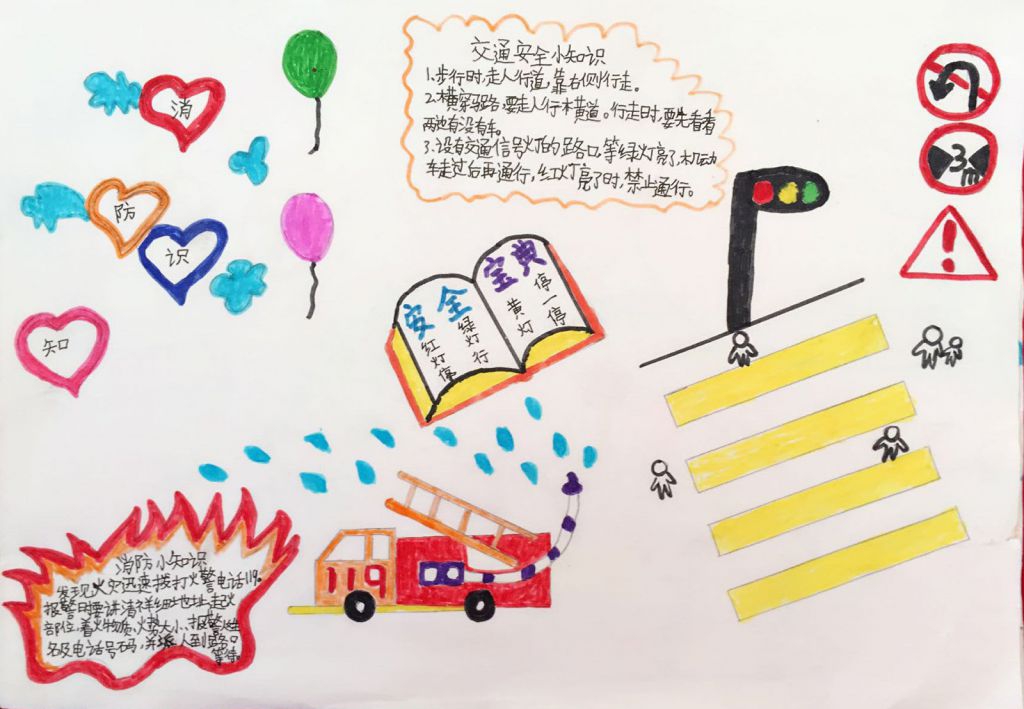 消
防
识
知
交通安全小知识
1.步行时,走人行道,靠右侧行走。
2.横穿马路,要走人行横道。行走时,要先看看
两边有没有车。
3.没有交通信号灯的路口,等绿灯亮了,机动
车走过后再通行,红灯亮了时,禁止通行。
3m
!
安全
宝典
红灯停
绿灯行
黄灯
停一停
119
消防小知识
发现火灾迅速拨打火警电话119。
报警时要讲清详细地址,起火
部位,着火物质,火势大小、报警人姓
名及电话号码,并派人到路口
等待。